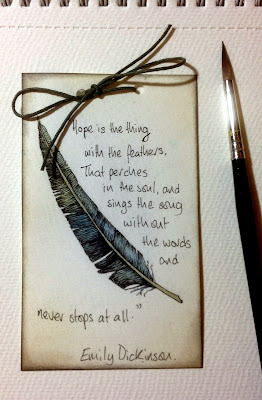 Hope is the thing
with the feathers,
That perches
in the soul, and
sings the song
without
the words
and
never stops at all."
Emily Dickinson.